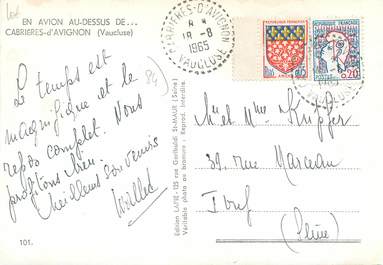 EN AVION AU-DESSUS DE...
CABRIERES-d'AVIGNON (Vaucluse)
CABRIERES-D'AVIGNON
18-8
1965
VAUCLUSE
0,20
84
Le temps est
magnifique et le
repos complet. Nous
profitons bien.
Meilleurs souvenirs
Edition LAPIE - 125 rue Garibaldi St-MAUR (Seine)
Véritable photo au bromure - Reprod. Interdite.
M et Mme Kupfer
39 rue Marceau
Ivry
(Seine)
101.